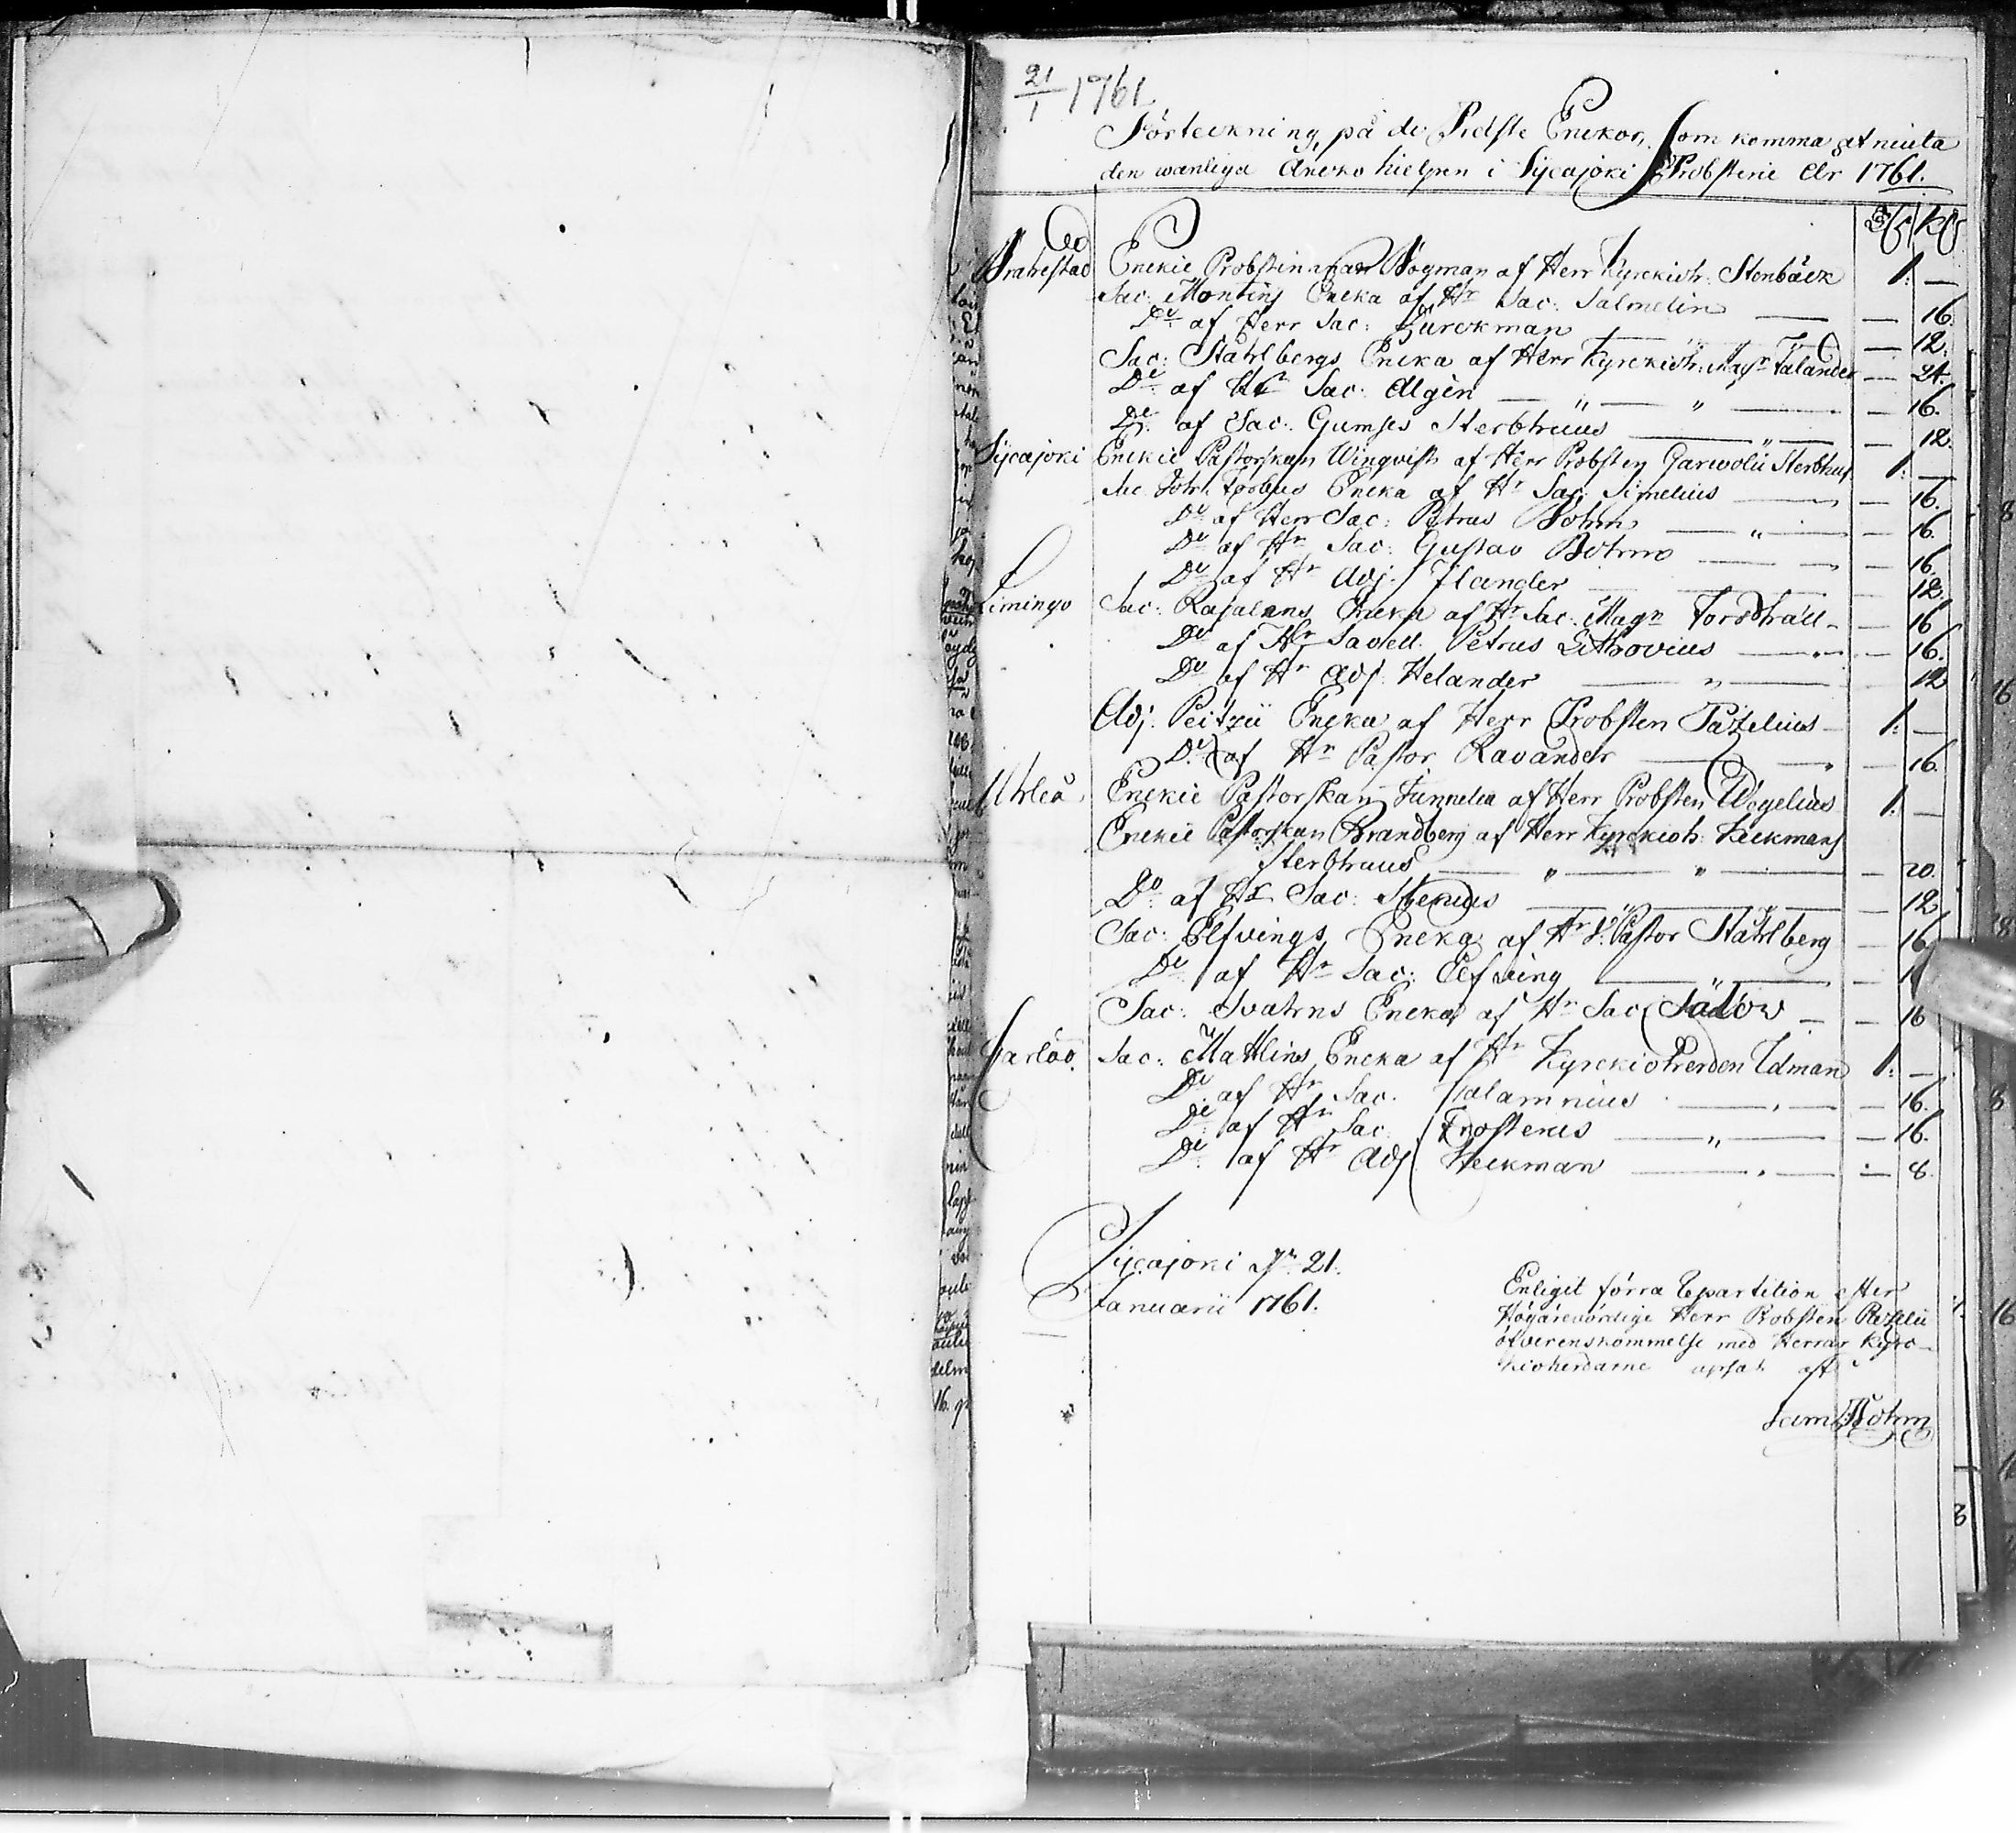 21/1 1761
Förteckning på de Preste Enckor, Som komma at niuta
den wanliga Åncko hielpen i Sijcajoki Probsterie År 1761.
Brahestad Enckie Probstinnan Bogman af Herr Kyrckioh: Stenbäck 1: —
Sac: Montins Encka af Hr Sac: Salmelin — — 16.
Do af Herr Sac: Zurckman — 12.
Sac: Ståhlbergs Encka af Herr Kyrckioh: Magr Falander — 24.
Do af Hr Sac: Algén — " — " — — 16.
Do af Sac: Gumses Sterbhuus — " — — 12.
Sijcajoki Enckie Pastorskan Winqvist af Herr Probsten Garwolii Sterbhus 1: —
Sac. Joh: Forbus Encka af Hr Sac: Simelius — — 16.
Do af Herr Sac: Petrus Bohm — " — — 16.
Do af Hr Sac: Gustav Bohm — — 16.
Do af Hr Adj: Ilander — 12.
Limingo Sac: Rajalens Encka af Hr Sac: Magr Forsthäll — — 16
Do af Hr Sacell. Petrus Lithovius — " — — 16.
Do af Hr Adj. Helander — " — 12
Adj. Peitzii Encka af Herr Probsten Pazelius — 1: —
Do af Hr Pastor Ravander — " — 16.
Uhleå Enckie Pastorskan Tunnelia af Herr Probsten Wegelius 1: —
Enckie Pastorskan Brandberg af Herr Kyrckioh: Keckmans
Sterbhuus — " — " — — 20.
Do af Hr Sac: Stenius — " — " — — 12
Sac: Elfvings Encka af Hr V: Pastor Ståhlberg — 16
Do af Hr Sac: Elfving — " — — 1
Sac: Svahns Encka af Hr Sac Sadov — — 16
Carlöö. Sac: Mathlins Encka af Hr Kyrckioherden Udman 1: —
Do af Hr Sac. Calamnius — " — — 16.
Do af Hr Sac Frosterus — " — — 16.
Do af Hr Adj Heckman — " — — 8.
Sijcajoki Jr 21.
Januarii 1761.
Enligit förra Repartition efter
Högärevördige Herr Probsten Pazelii
öfverenskommelse med Herrar Kyrc-
kioherdarne upsat af
Sam: Bohm